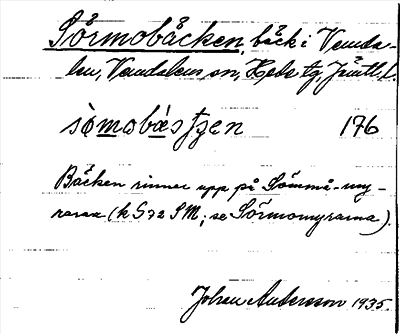 Sörmobäcken, bäck i Vemda-
len, Vemdalens sn, Hede tg, Jämtl. l.
sò̀mobæ̀stʃen 176
Bäcken rinner upp på Sömmå-my-
rarna (k S72 SM; se Sörmomyrarna).
Johan Andersson 1935.